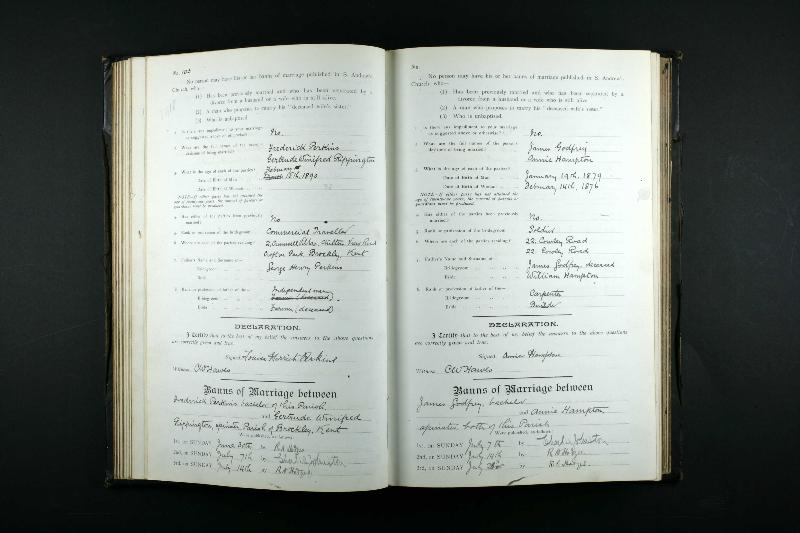 No. 103
No person may have his or her banns of marriage published in S. Andrew's
Church, who—
(1) Has been previously married and who has been separated by a
divorce from a husband or a wife who is still alive.
(2) A man who proposes to marry his "deceased wife's sister."
(3) Who is unbaptised.
Is there any impediment to your marriage
as suggested above or otherwise? No.
What are the full names of the persons
desirous of being married? Frederick Perkins
Gertrude Winifred Rippington
What is the age of each of the parties? February
Date of Birth of Man 18th, 1890
Date of Birth of Woman
NOTE—If either party has not attained the
age of twenty-one years, the consent of parents or
guardians must be produced.
Has either of the parties been previously
married? No
Rank or profession of the bridegroom Commercial Traveller
Where are each of the parties residing?
Crofton Park, Brockley, Kent
Father's Name and Surname of—
Bridegroom George Henry Perkins
Bride
Rank or profession of father of the— Independent man
Bridegroom Farmer (deceased)
Bride Farmer (deceased)
DECLARATION.
I Certify that to the best of my belief the answers to the above questions
are correctly given and true.
Signed Perkins
Witness CW Hawes
Banns of Marriage between
Frederick Perkins bachelor of this Parish
and Gertrude Winifred
Rippington, spinster Parish of Brockley, Kent
Were published, as follows:
1st, on SUNDAY June 30th by R H Hodges
2nd, on SUNDAY July 7th by
3rd, on SUNDAY July 14th by R H Hodges
No.
No person may have his or her banns of marriage published in S. Andrew's
Church, who—
(1) Has been previously married and who has been separated by a
divorce from a husband or a wife who is still alive.
(2) A man who proposes to marry his "deceased wife's sister."
(3) Who is unbaptised.
Is there any impediment to your marriage
as suggested above or otherwise? No.
What are the full names of the persons
desirous of being married? James Godfrey
Annie Hampton
What is the age of each of the parties?
Date of Birth of Man January 19th, 1879
Date of Birth of Woman February 14th, 1876
NOTE—If either party has not attained the
age of twenty-one years, the consent of parents or
guardians must be produced.
Has either of the parties been previously
married? No.
Rank or profession of the bridegroom Soldier
Where are each of the parties residing? 22. Cowley Road
22. Cowley Road
Father's Name and Surname of—
Bridegroom James Godfrey, deceased
Bride William Hampton
Rank or profession of father of the—
Bridegroom Carpenter
Bride Builder
DECLARATION.
I Certify that to the best of my belief the answers to the above questions
are correctly given and true.
Signed Annie Hampton
Witness CW Hawes
Banns of Marriage between
James Godfrey, bachelor
and Annie Hampton
spinster both of this Parish
Were published, as follows:
1st, on SUNDAY July 7th by
2nd, on SUNDAY July 14th by R H Hodges
3rd, on SUNDAY July by R H Hodges